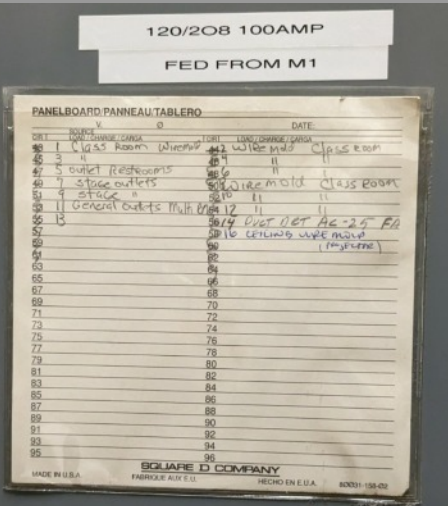 120/208 100AMP
FED FROM M1
PANELBOARD/PANNEAU/TABLERO
V. Ø DATE:
SOURCE
CIRT LOAD/CHARGE/CARGA CIRT LOAD/CHARGE/CARGA
1 Class Room Wiremold 2 Wiremold Classroom
3 " 4 " "
5 outlet Restrooms 6 " "
7 stage outlets 8 Wiremold Classroom
9 stage " 10 " "
11 General outlets Multi 12 " "
13 14 Duct Det AC-25 FA
57 16 CEILING WIRE MOLD
59
61 62
63 64
65 66
67 68
69 70
71 72
73 74
75 76
77 78
79 80
81 82
83 84
85 86
87 88
89 90
91 92
93 94
95 96
SQUARE D COMPANY
MADE IN U.S.A. FABRIQUE AUX E.U. HECHO EN E.U.A.